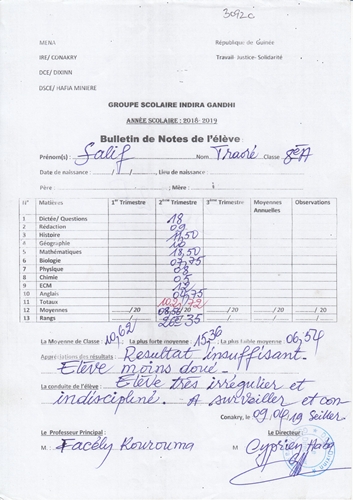 3092c
MENA
République de Guinée
IRE/ CONAKRY
Travail- Justice- Solidarité
DCE/ DIXINN
DSCE/ HAFIA MINIERE
GROUPE SCOLAIRE INDIRA GANDHI
ANNÉE SCOLAIRE : 2018- 2019
Bulletin de Notes de l'élève
Prénom(s) : Salif Nom Traoré Classe 8èA
Date de naissance : / / , Lieu de naissance :
Père : ; Mère :
N° Matières 1er Trimestre 2ème Trimestre 3ème Trimestre Moyennes Annuelles Observations
1 Dictée/ Questions 18
2 Rédaction 09
3 Histoire 11,50
4 Géographie 10
5 Mathématiques 18,50
6 Biologie 07,75
7 Physique 08
8 Chimie
9 ECM
10 Anglais 04,75
11 Totaux
12 Moyennes /20 /20 /20 /20
13 Rangs 35
La Moyenne de Classe : 10,62 La plus forte moyenne : 15,36 La plus faible moyenne 06,54
Appréciations des résultats : Résultat insuffisant.
Elève moins doué.
La conduite de l'élève : Elève très irrégulier et
indiscipliné. A surveiller et con
Conakry, le 09.04.19 seiller.
Le Professeur Principal : Le Directeur
M : Facély Kourouma M : Cyprien Haba